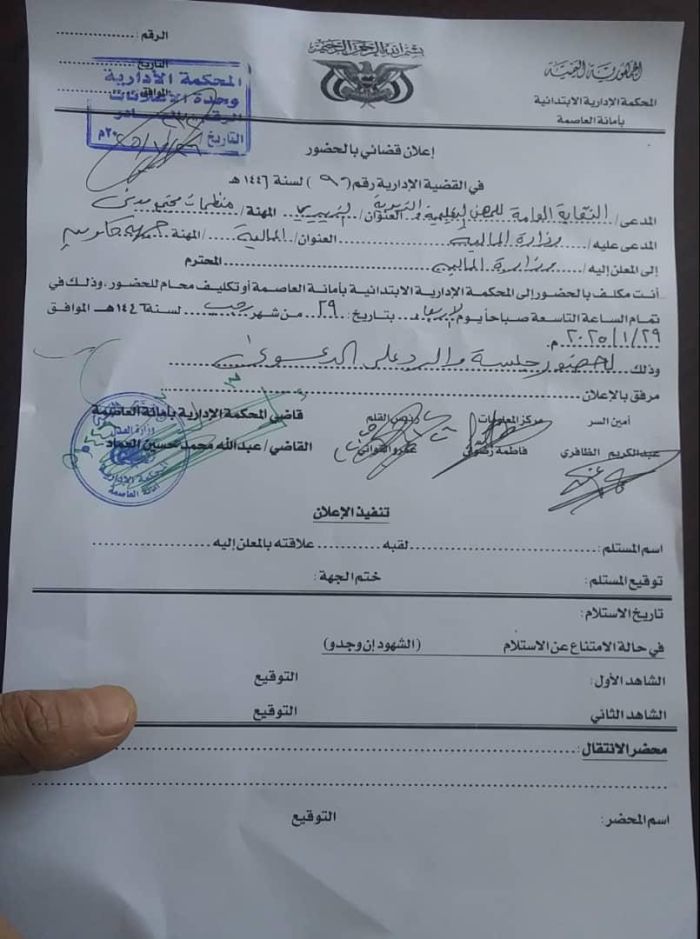 بسم الله الرحمن الرحيم
الجمهورية اليمنية
المحكمة الإدارية الابتدائية
بأمانة العاصمة
الرقم :
التاريخ
الموافق
المحكمة الادارية
وحدة الاعلانات
الرقم
التاريخ ٢٠م
إعلان قضائي بالحضور
في القضية الإدارية رقم (٩٩) لسنة ١٤٤٦ هـ
المدعى/ النقابة العامة للمهن التعليمية والتربوية العنوان/ المهنة/ منظمات مجتمع مدني
المدعى عليه/ وزارة المالية العنوان/ المالية المهنة/ جهة حكومية
إلى المعلن إليه/ وزارة المالية المحترم
أنت مكلف بالحضور إلى المحكمة الإدارية الابتدائية بأمانة العاصمة أو تكليف محام للحضور، وذلك في
تمام الساعة التاسعة صباحاً يوم الاربعاء بتاريخ: ٢٩ من شهر رجب لسنة ١٤٤٦ هـ الموافق
٢٠٢٥/١/٢٩ م.
وذلك لحضور جلسة والرد على الدعوى
مرفق بالإعلان
أمين السر مركز المعلومات رئيس القلم قاضي المحكمة الإدارية بأمانة العاصمة
عبدالكريم الظافري فاطمة عمرو القاضي/ عبدالله محمد حسين العماد
وزارة العدل
المحكمة الإدارية
أمانة العاصمة
تنفيذ الإعلان
اسم المستلم: لقبه علاقته بالمعلن إليه
توقيع المستلم: ختم الجهة:
تاريخ الاستلام:
في حالة الامتناع عن الاستلام (الشهود إن وجدو)
الشاهد الأول: التوقيع
الشاهد الثاني التوقيع
محضر الانتقال:
اسم المحضر: التوقيع